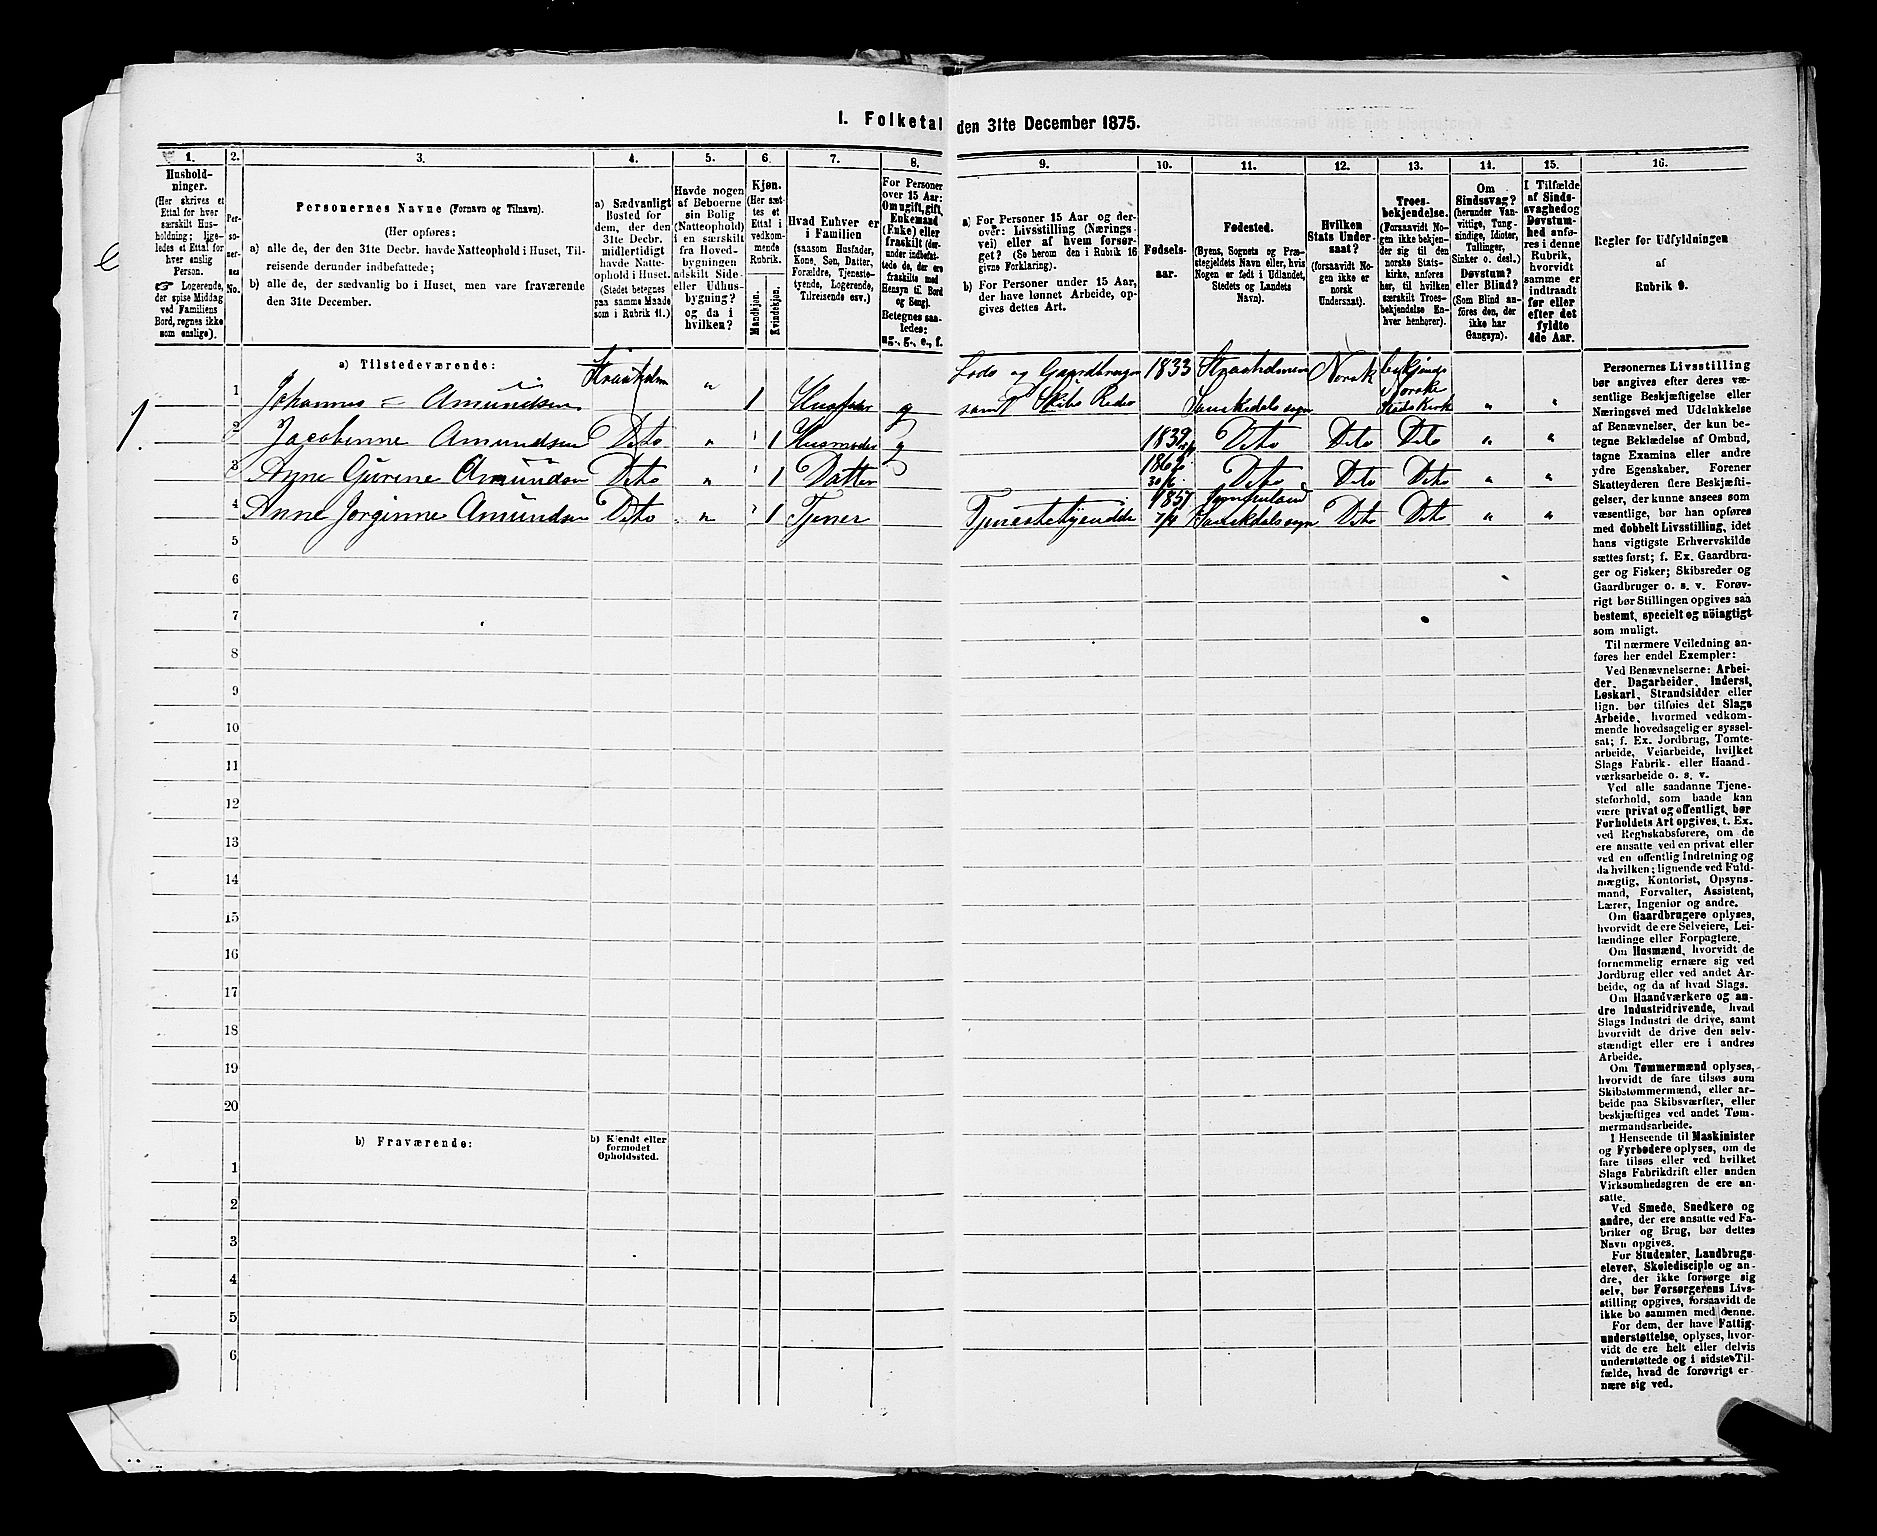 1. Folketal den 31te December 1875.
1. 2. 3. 4. 5. 6. 7. 8. 9. 10. 11. 12. 13. 14. 15. 16.
Hushold-
ninger.
(Her skrives et
Ettal for hver
særskilt Hus-
holdning; lige-
ledes et Ettal for
hver enslig
Person.
☞ Logerende,
der spise Middag
ved Familiens
Bord, regnes ikke
som enslige).
Per-
so-
ner-
nes
No.
Personernes Navne (Fornavn og Tilnavn).
(Her opføres:
a) alle de, der den 31te Decbr. havde Natteophold i Huset, Til-
reisende derunder indbefattede;
b) alle de, der sædvanlig bo i Huset, men vare fraværende
den 31te December.
a) Sædvanligt
Bosted for
dem, der den
31te Decbr.
midlertidigt
havde Natte-
ophold i Huset.
(Stedet betegnes
paa samme Maade
som i Rubrik 11.)
Havde nogen
af Beboerne
sin Bolig
(Natteophold)
i en særskilt
fra Hoved-
bygningen
adskilt Side-
eller Udhus-
bygning?
og da i
hvilken?
Kjøn.
(Her sæt-
tes et
Ettal i
vedkom-
mende
Rubrik.
Mandkjøn.
Kvindekjøn.
Hvad Enhver er
i Familien
(saasom Husfader,
Kone, Søn, Datter,
Forældre, Tjeneste-
tyende, Logerende,
Tilreisende osv.)
For Personer
over 15 Aar:
Om ugift, gift,
Enkemand
(Enke) eller
fraskilt (der-
under indbefat-
tede de, der ere
fraskilte med
Hensyn til Bord
og Seng).
Betegnes saa-
ledes:
ug., g., e., f.
a) For Personer 15 Aar og der-
over: Livsstilling (Nærings-
vei) eller af hvem forsør-
get? (Se herom den i Rubrik 16
givne Forklaring).
b) For Personer under 15 Aar,
der have lønnet Arbeide, op-
gives dettes Art.
Fødsels-
aar.
Fødested.
(Byens, Sognets og Præ-
stegjeldets Navn eller, hvis
Nogen er født i Udlandet,
Stedets og Landets
Navn).
Hvilken
Stats Under-
saat?
(forsaavidt No-
gen ikke er
norsk
Undersaat).
Troes-
bekjendelse.
(Forsaavidt No-
gen ikke bekjen-
der sig til den
norske Stats-
kirke, anføres
her, til hvilken
særskilt Troes-
bekjendelse En-
hver henhører).
Om
Sindssvag?
(herunder Van-
vittige, Tung-
sindige, Idioter,
Tullinger,
Sinker o. desl.)
Døvstum?
eller Blind?
(Som Blind an-
føres den, der
ikke har
Gangsyn).
I Tilfælde
af Sinds-
svaghed og
Døvstum-
hed anfø-
res i denne
Rubrik,
hvorvidt
samme er
indtraadt
før eller
efter det
fyldte
4de Aar.
Regler for Udfyldningen
af
Rubrik 9.
a) Tilstedeværende:
1 Johannes Amundsen Straaholm " 1 Husfader g Lods og Gaardbruger samt Skibs Reder 1833 Straaholmen Sannikedals sogn Norsk bekjende Norske Stats Kirk " "
2 Jacobenne Amundsen Dito " 1 Husmoder 1839 Dito Dito Dito " "
3 Anne Gurene Amundsen Dito " 1 Datter 1862 30/6 Dito Dito Dito " "
4 Anne Jorginne Amundsen Dito " 1 Tjener Tjenestetyende 1857 7/4 Jomfruland Sannikdals sogn Dito Dito " "
1
5
6
7
8
9
10
11
12
13
14
15
16
17
18
19
20
b) Fraværende:
b) Kjendt eller
formodet
Opholdssted.
1
2
3
4
5
6
Personernes Livsstilling
bør angives efter deres væ-
sentlige Beskjæftigelse eller
Næringsvei med Udelukkelse
af Benævnelser, der kun be-
tegne Beklædelse af Ombud,
tagne Examina eller andre
ydre Egenskaber. Forener
Skatteyderen flere Beskjæfti-
gelser, der kunne ansees som
væsentlige, bør han opføres
med dobbelt Livsstilling, idet
hans vigtigste Erhvervskilde
sættes først; f. Ex. Gaardbru-
ger og Fisker; Skibsreder og
Gaardbruger o. s. v. Forøv-
rigt bør Stillingen opgives saa
bestemt, specielt og nöiagtigt
som muligt.
Til nærmere Veiledning an-
føres her endel Exempler:
Ved Benævnelserne: Arbei-
der, Dagarbeider, Inderst,
Løskarl, Strandsidder eller
lign. bør tilføies det Slags
Arbeide, hvormed vedkom-
mende hovedsagelig er syssel-
sat; f. Ex. Jordbrug, Tomte-
arbeide, Veiarbeide, hvilket
Slags Fabrik- eller Haand-
værksarbeide o. s. v.
Ved alle saadanne Tjene-
steforhold, som baade kan
være privat og offentligt, bør
Forholdets Art opgives, t. Ex.
ved Regnskabsførere, om de
ere ansatte ved en privat eller
ved en offentlig Indretning og
da hvilken; lignende ved Fuld-
mægtig, Kontorist, Opsyns-
mand, Forvalter, Assistent,
Lærer, Ingeniør og andre.
Om Gaardbrugere oplyses,
hvorvidt de ere Selveiere, Lei-
lændinge eller Forpagtere.
Om Husmænd, hvorvidt de
fornemmelig ernære sig ved
Jordbrug eller ved andet Ar-
beide, og da af hvad Slags.
Om Haandværkere og an-
dre Industridrivende, hvad
Slags Industri de drive, samt
hvorvidt de drive den selv-
stændigt eller ere i andres
Arbeide.
Om Tømmermænd oplyses,
hvorvidt de fare tilsøs som
Skibstømmermænd, eller ar-
beide paa Skibsværfter, eller
beskjæftiges ved andet Tøm-
mermandsarbeide.
I Henseende til Maskinister
og Fyrbødere oplyses, om de
fare tilsøs eller ved hvilket
Slags Fabrikdrift eller anden
Virksomhedsgren de ere an-
satte.
Ved Smede, Snedkere og
andre, der ere ansatte ved Fa-
briker og Brug, bør dettes
Navn opgives.
For Studenter, Landbrugs-
elever, Skoledisciple og an-
dre, der ikke forsørge sig
selv, bør Forsørgerens Livs-
stilling opgives, forsaavidt de
ikke bo sammen med denne.
For dem, der have Fattig-
understøttelse, oplyses, hvor-
vidt de ere helt eller delvis
understøttede og i sidste Til-
fælde, hvad de forøvrigt er-
nære sig ved.